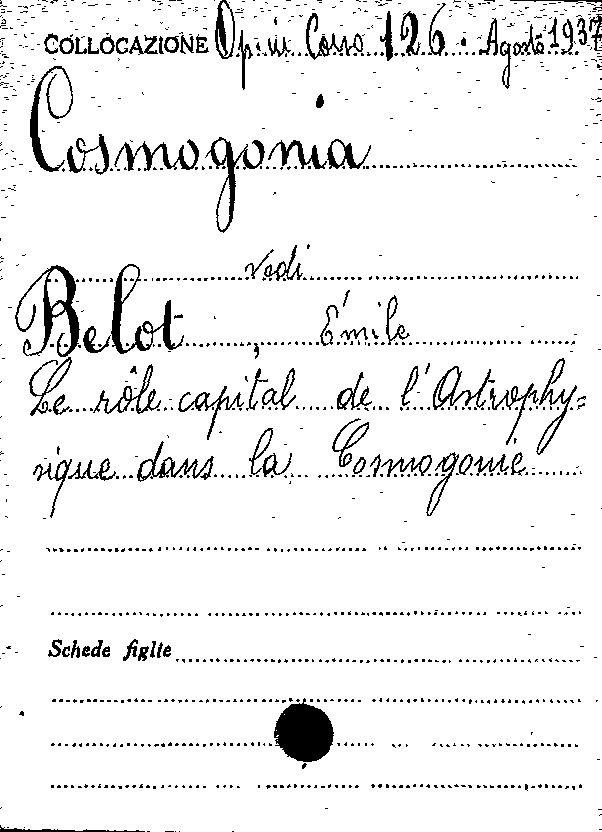 COLLOCAZIONE Op. in Corso 126. Agosto 1937
Cosmogonia
vedi
Belot, Émile
Le rôle capital de l'Astrophy=
sique dans la Cosmogonie
Schede figlie